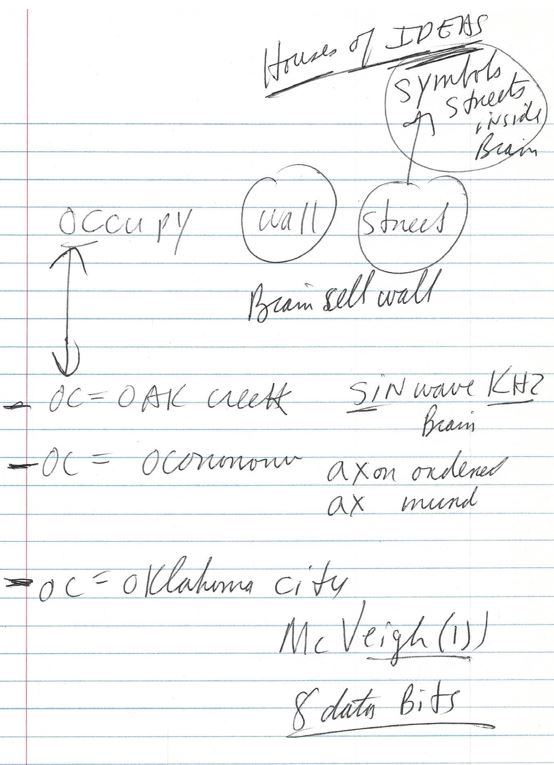 Houses of IDEAS
Symbols
Streets
inside
Brain
OCCUPY wall street
Brain sell wall
- OC = OAK creek SiN wave KHZ
Brain
- OC = axon ordered
ax mund
- OC = OKlahoma city
McVeigh (1))
8 data Bits